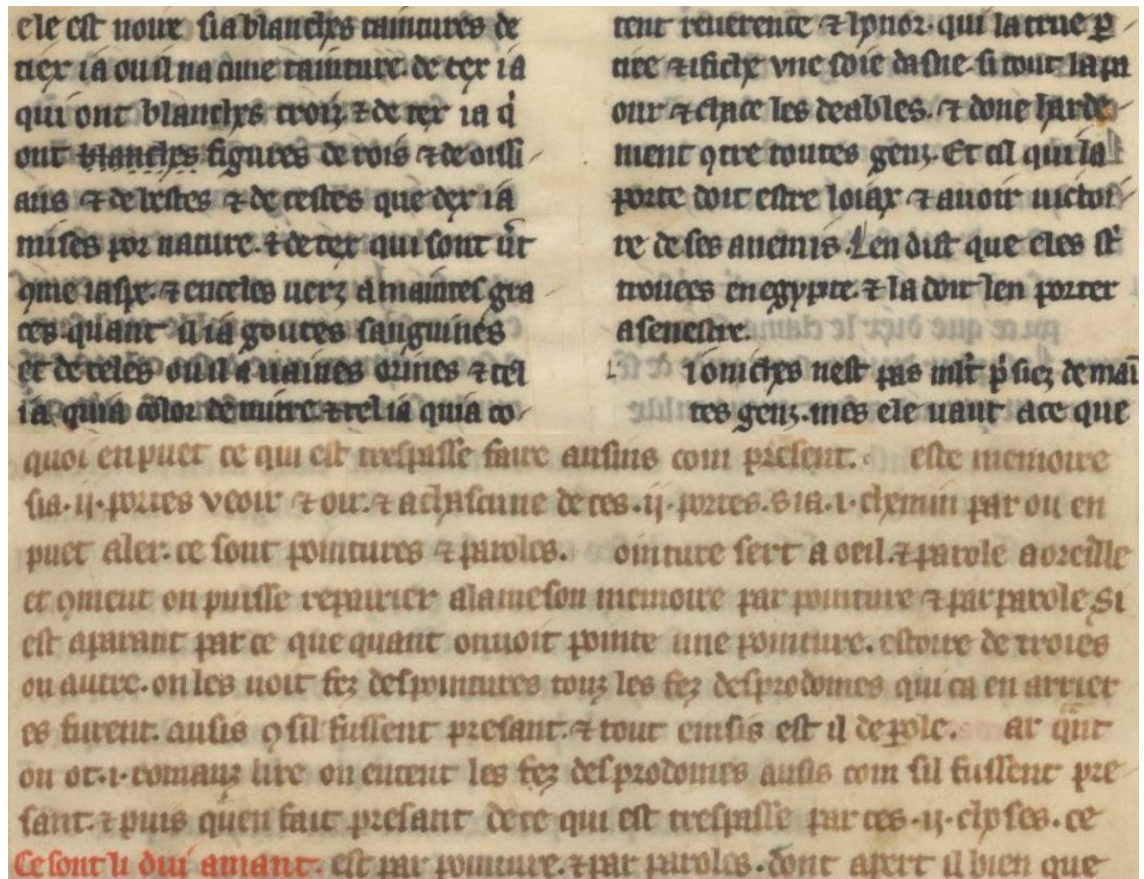 ele est noire si a blanches taintures de
tiex i a ou il na cune tainture. de tex i a
qui ont blanches croiz. ⁊ de tex i a q̇
ont blanches figures de rois ⁊ de oissi
aus ⁊ de bestes ⁊ de testes que dex i a
mises por nature. ⁊ de tex qui sont ūt
ꝯme iaspe. ⁊ en celes uerz a maintes gra
ces quant il i a goutes sanguines
et de teles ou il a uaines orines ⁊ tel
i a qui a color de nuire ⁊ tel i a qui a co
tent reuerence ⁊ honor. qui la true ꝑ
tire ⁊ ifiche vne soie dasne si tout la pa
our ⁊ chace les deables. ⁊ done harde
ment ꝯtre toutes genz. Et cil qui la
porte doit estre loiax ⁊ auoir uictoi
re de ses anemis. Len dist que eles st̄
trouees en egypte. ⁊ la doit len porter
a senestre.
ioniches nest pas mlt̄ p̓siez de maī
tes genz. mes ele uaut a ce que
quoi en puet ce qui est trespasse faire ausins com present. este memoire
si a .ij. portes veoir ⁊ oir. ⁊ a chascune de ces .ij. portes. s i a .i. chemin par ou en
puet aler. ce sont pointures ⁊ paroles. ointure sert a oeil. ⁊ parole a oreille
et ꝯment on puisse repairier a la meson memoire par pointure ⁊ par parole Si
est aparant par ce que quant on uoit pointe une pointure. estoire de troies
ou autre. on les uoit fez des pointures touz les fez des prodomes qui ca en arrier
es furent. ausis ꝯ sil fussent presant. ⁊ tout einsis est il de ꝑole. ar q̄nt
on ot .i. romanz lire on entent les fez des prodomes ausis com sil fussent pre
sant. ⁊ puis quen fait presant de ce qui est trespasse par ces .ij. choses. ce
Ce sont li dui amant. est par pointure. ⁊ par paroles. dont apert il bien que